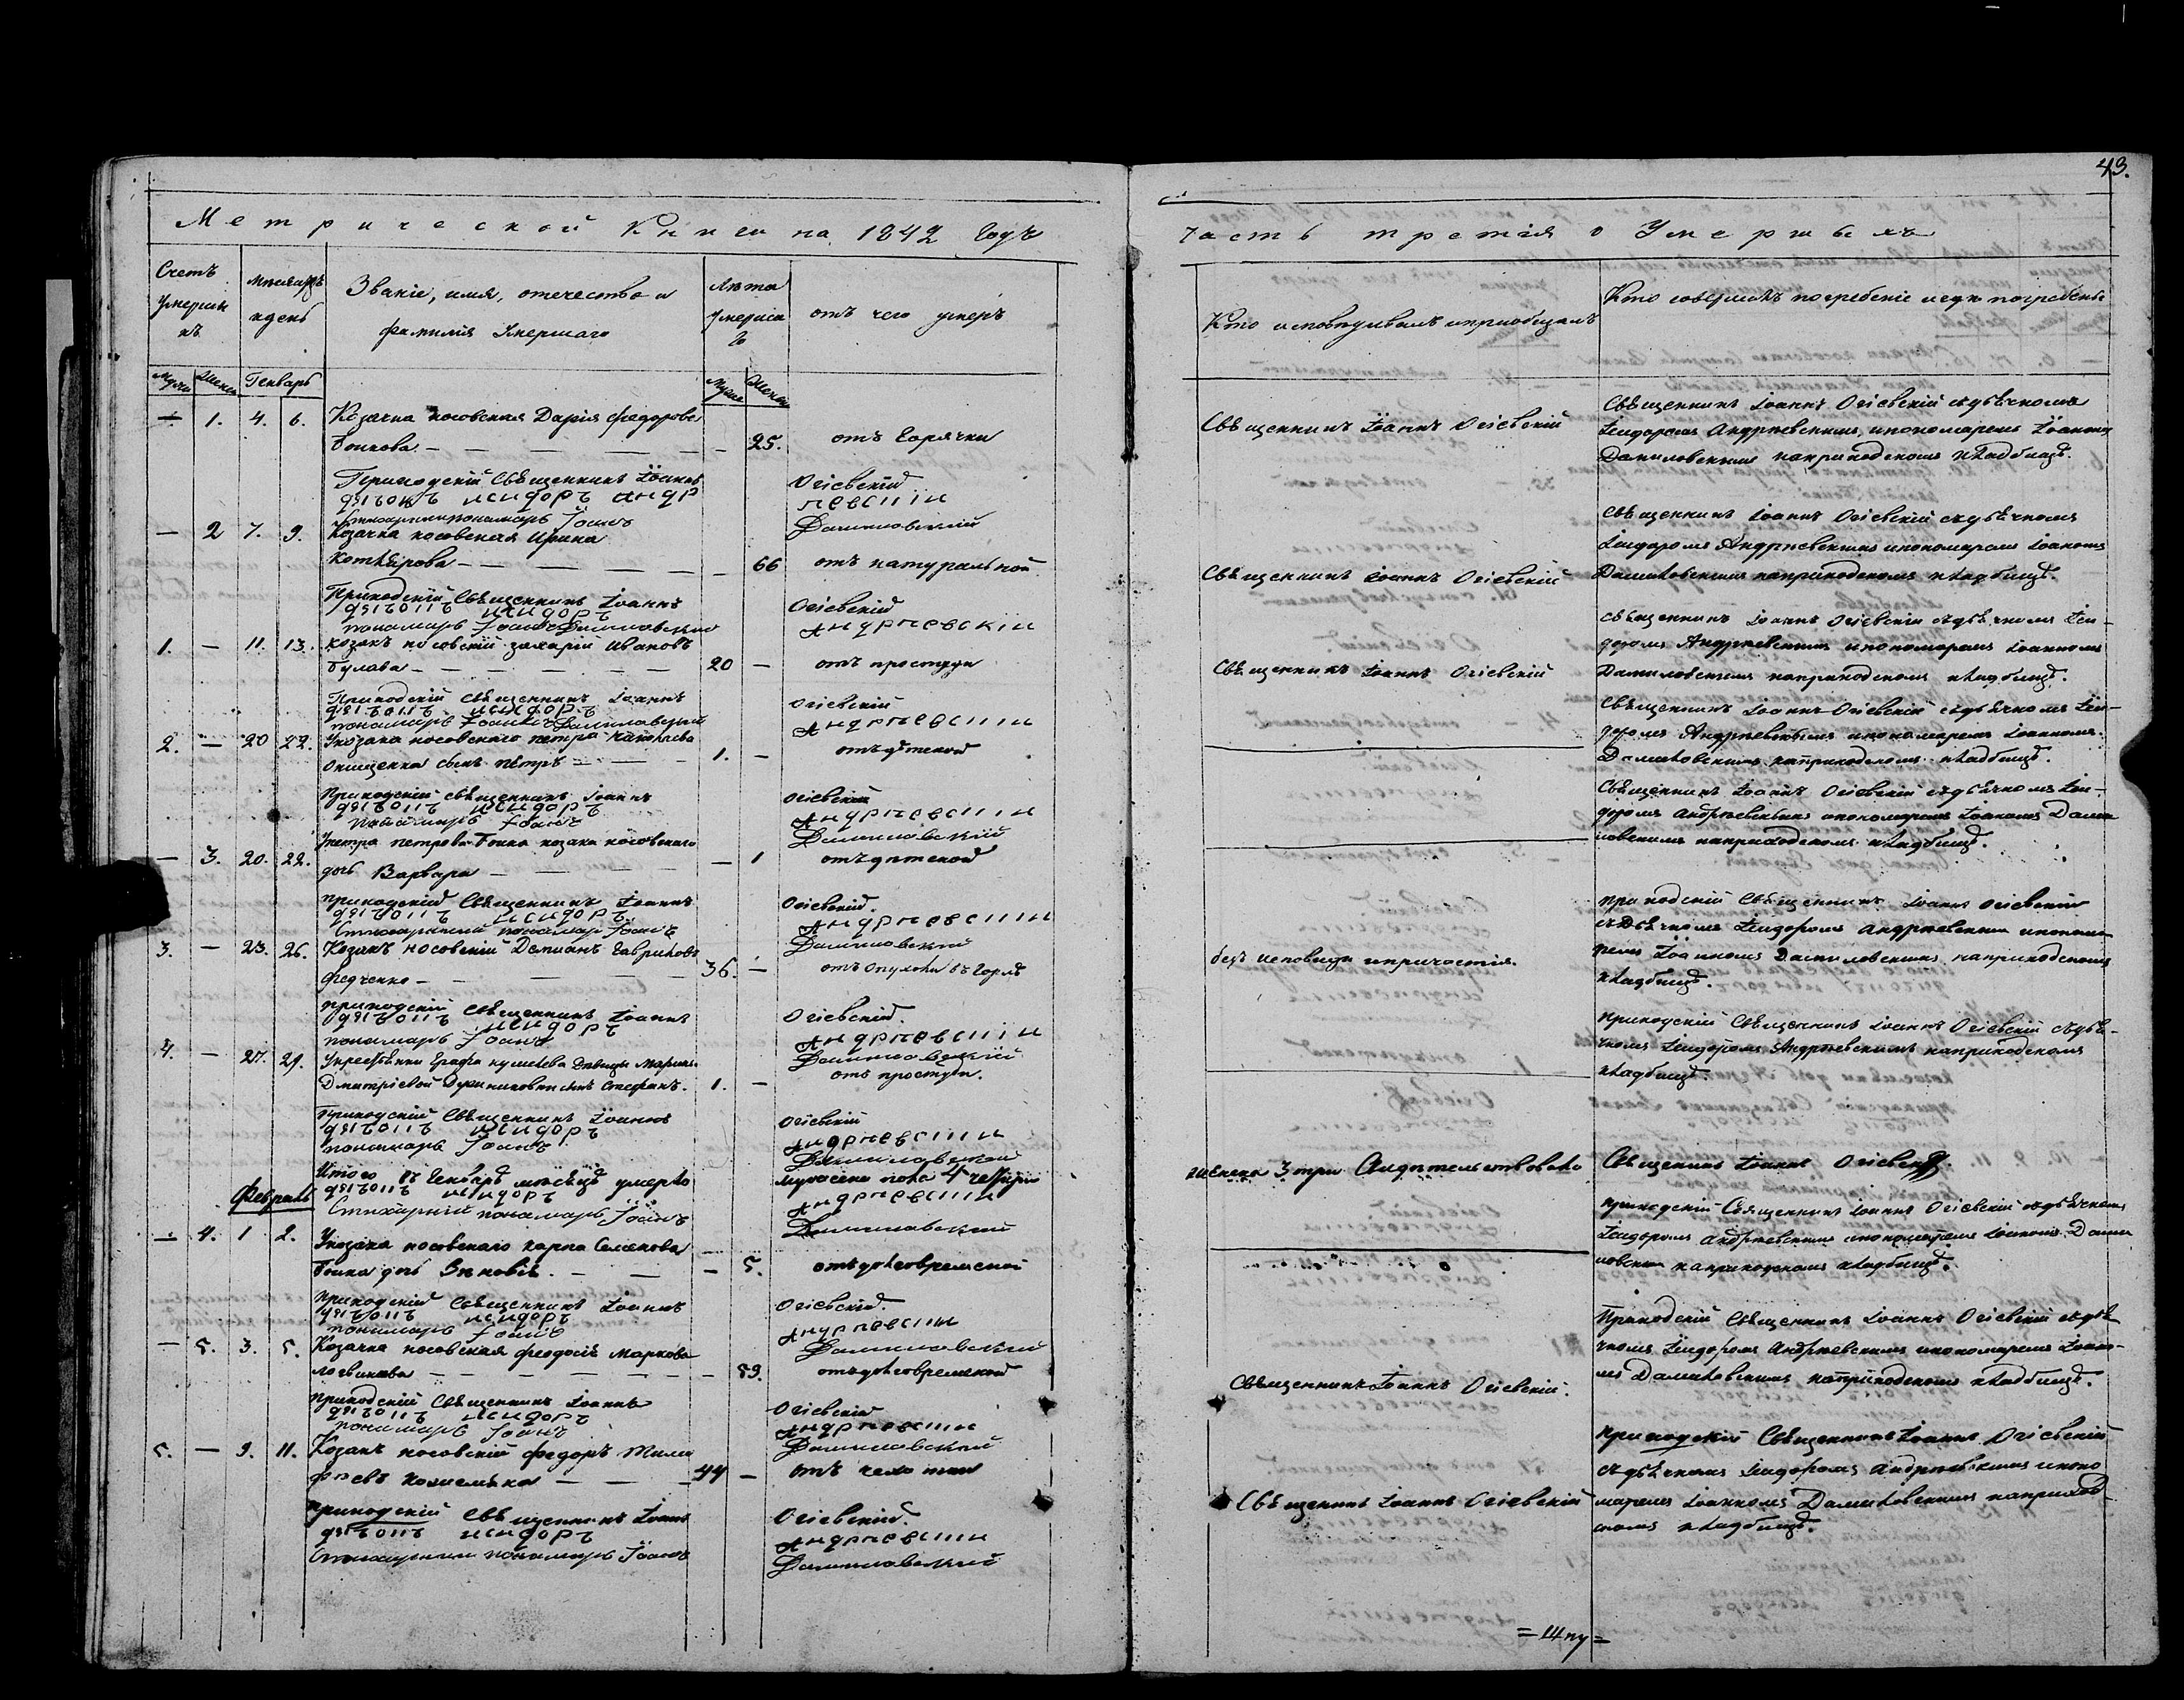 43.
Метрической Книги на 1842 годъ
Часть третія о Умершыхъ
Счетъ умершихъ
Мѣсяцъ и день
Званіе, имя, отечество и фамилія Умершаго
Лѣта умершаго
отъ чего умеръ
Кто исповѣдывалъ и пріобщалъ
Кто совершалъ погребеніе и гдѣ погребены
Генварь
— 1. 4. 6. Козачка носовская Дарія Федорова
Бонкова — — 25. отъ горячки
Священникъ Іоаннъ Огіевскій
Священникъ Іоаннъ Огіевскій съ дьячкомъ
Ісидоромъ Андріевскимъ и пономаремъ Іоанномъ
Даниловскимъ на приходскомъ кладбищѣ.
Приходскій Священникъ Іоаннъ Огіевскій
дячокъ исидоръ андріевскій
Стихарный пономарь Іоаннъ Даниловскій
— 2 7. 9. Козачка носовская Ирина
Котлярова — — 66 отъ натуральной
Священникъ Іоаннъ Огіевскій
Священникъ Іоаннъ Огіевскій съ дьячкомъ
Ісидоромъ Андріевскимъ и пономаремъ Іоанномъ
Даниловскимъ на приходскомъ кладбищѣ.
Приходскій Священникъ Іоаннъ Огіевскій
дячокъ исидоръ андріевскій
пономарь Іоаннъ Даниловскій
1. — 11. 13. Козакъ носовскій Захарій Ивановъ
Булава — 20 — отъ простуды
Священникъ Іоаннъ Огіевскій
Священникъ Іоаннъ Огіевскій съ дьячкомъ Ісидоромъ
Андріевскимъ и пономаремъ Іоанномъ
Даниловскимъ на приходскомъ кладбищѣ.
Приходскій Священникъ Іоаннъ Огіевскій
дячокъ исидоръ андріевскій
пономарь Іоаннъ Даниловскій
2. — 20 22. У козака носовскаго Петра
Онищенка сынъ Петръ — 1. — отъ дѣтской
Священникъ Іоаннъ Огіевскій съ дьячкомъ Ісидоромъ
Андріевскимъ и пономаремъ Іоанномъ
Даниловскимъ на приходскомъ кладбищѣ.
Приходскій Священникъ Іоаннъ Огіевскій
дячокъ исидоръ андріевскій
пономарь Іоаннъ Даниловскій
— 3. 20. 22. У Петра Петрова Бонка козака носовскаго
дочь Варвара — — 1 отъ дѣтской
Священникъ Іоаннъ Огіевскій съ дьячкомъ Ісидоромъ
Андріевскимъ и пономаремъ Іоанномъ Даниловскимъ
на приходскомъ кладбищѣ.
Приходскій Священникъ Іоаннъ Огіевскій.
дячокъ исидоръ андріевскій
Стихарный пономарь Іоаннъ Даниловскій
3. — 23. 26. Козакъ носовскій Даміанъ Гавриловъ
Федченко — 36. — отъ опухоли въ горлѣ
безъ исповѣди и причастія.
Приходскій Священникъ Іоаннъ Огіевскій
съ дьячкомъ Ісидоромъ Андріевскимъ и пономаремъ
Іоанномъ Даниловскимъ на приходскомъ
кладбищѣ.
Приходскій Священникъ Іоаннъ Огіевскій.
дячокъ исидоръ андріевскій
пономарь Іоаннъ Даниловскій
4. — 27. 29. У крестьянки Графа Кушелева Дѣвицы Маріи
Дмитріевой сынъ Стефанъ. 1. — отъ простуды.
Приходскій Священникъ Іоаннъ Огіевскій съ дьячкомъ
Ісидоромъ Андріевскимъ на приходскомъ
кладбищѣ.
Приходскій Священникъ Іоаннъ Огіевскій
дячокъ исидоръ андріевскій
пономарь Іоаннъ Даниловскій
Итого въ Генварѣ мѣсяцѣ умерло мужеска пола 4 четыри женска 3 три Свидѣтельствовалъ Священникъ Іоаннъ Огіевскій.
дячокъ исидоръ андріевскій
Стихарный пономарь Іоаннъ Даниловскій
Февраль
— 4. 1 2. У козака носовскаго Карпа Семенова
Бонка дочь Зѣновія. — — 5. отъ долговременной
Приходскій Священникъ Іоаннъ Огіевскій съ дьячкомъ
Ісидоромъ Андріевскимъ и пономаремъ Іоанномъ Даниловскимъ
на приходскомъ кладбищѣ.
Приходскій Священникъ Іоаннъ Огіевскій.
дячокъ исидоръ андріевскій
пономарь Іоаннъ Даниловскій
— 5. 3. 5. Козачка носовская Феодосія Маркова
Логвинова — — 59. отъ долговременной
Священникъ Іоаннъ Огіевскій.
Приходскій Священникъ Іоаннъ Огіевскій съ дьячкомъ
Ісидоромъ Андріевскимъ и пономаремъ Іоанномъ
Даниловскимъ на приходскомъ кладбищѣ.
Приходскій Священникъ Іоаннъ Огіевскій
дячокъ исидоръ андріевскій
пономарь Іоаннъ Даниловскій
5. — 9. 11. Козакъ носовскій Федоръ Тимофѣевъ
Кожемяка — 44 — отъ
Священникъ Іоаннъ Огіевскій
Приходскій Священникъ Іоаннъ Огіевскій
съ дьячкомъ Ісидоромъ Андріевскимъ и пономаремъ
Іоанномъ Даниловскимъ на приходскомъ
кладбищѣ.
Приходскій Священникъ Іоаннъ Огіевскій.
дячокъ исидоръ андріевскій
Стихарный пономарь Іоаннъ Даниловскій